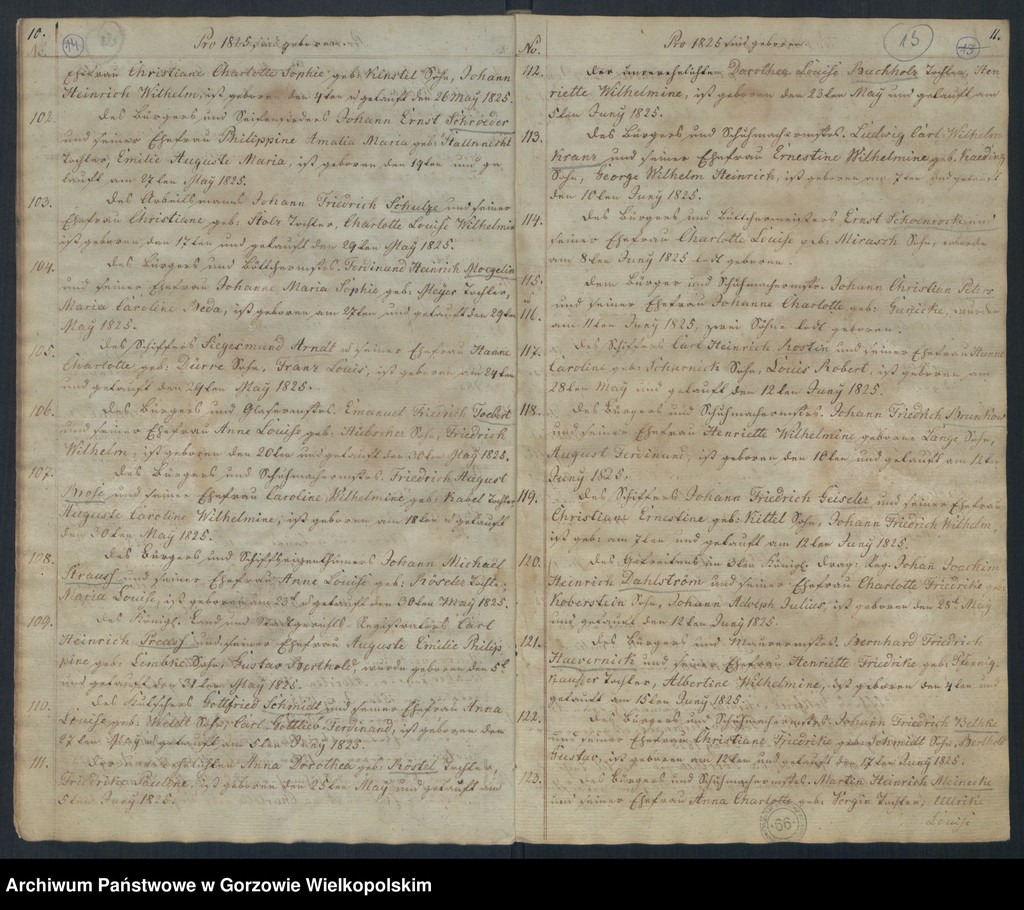 10.
14
Pro 1825 sind geboren.
Ehefrau Christiane Charlotte Sophie geb: Kienstel Sohn, Johann
Heinrich Wilhelm, ist geboren den 4ten u getauft den 26 May 1825.
102. Des Bürgers und Seifensieders Johann Ernst Schroeder
und seiner Ehefrau Philippine Amalia Maria geb: Stallknecht
Tochter, Emilie Auguste Maria, ist geboren den 19ten und ge
tauft am 27ten May 1825.
103. Des Arbeitsmanns Johann Friedrich Schulze und seiner
Ehefrau Christiane geb: Stolz Tochter, Charlotte Louise Wilhelmin
ist geboren den 17ten und getauft den 29ten May 1825.
104. Des Bürgers und Böttchermstrs. Ferdinand Heinrich Moegelin
und seiner Ehefrau Johanne Maria Sophie geb: Meyer Tochter,
Maria Caroline Beda, ist geboren am 27ten und getauft den 29ten
May 1825.
105. Des Schiffers Siegesmund Arndt u seiner Ehefrau Hanne
Charlotte geb: Dürre Sohn, Franz Louis, ist geboren am 24ten
und getauft den 29ten May 1825.
106. Des Bürgers und Glasermstrs. Emanuel Friedrich Toebert
und seiner Ehefrau Anne Louise geb: Huebscher Sohn, Friedrich
Wilhelm, ist geboren den 20ten und getauft den 30ten May 1825.
107. Des Bürgers und Schuhmachermstrs. Friedrich August
Brose und seiner Ehefrau Caroline Wilhelmine geb: Kabel Tochter
Auguste Caroline Wilhelmine, ist geboren am 18ten u getauft
den 30ten May 1825.
108. Des Bürgers und Schiffseigenthümers Johann Michael
Krauss und seiner Ehefrau Anne Louise geb: Röseler Tochter
Maria Louise, ist geboren am 23t. u getauft den 30ten May 1825.
109. Des Königl. Land und Stadtgerichts-Registrators Carl
Heinrich und seiner Ehefrau Auguste Emilie Philip
pine geb: Lembke Sohn, Gustav Berthold, wurde geboren den 5t
und getauft den 31ten May 1825.
110. Des Gottfried Schmidt und seiner Ehefrau Anna
Louise geb: Weldt Sohn, Carl Gottlieb Ferdinand, ist geboren den
27ten May u getauft am 5ten Juny 1825.
111. Der unverehelichten Anna Dorothea geb: Röstel Tochter,
Friderike Pauline, ist geboren den 25ten May und getauft am
5ten Juny 1825.
11.
13
13
No.
Pro 1825 sind geboren.
112. Der unverehelichten Dorothea Louise Buchholz Tochter, Hen
riette Wilhelmine, ist geboren den 23ten May und getauft am
5ten Juny 1825.
113. Des Bürgers und Schuhmachermstrs. Ludwig Carl Wilhelm
Kranz und seiner Ehefrau Ernestine Wilhelmine geb. Kaeding
Sohn, George Wilhelm Heinrich, ist geboren am 7ten und getauft
den 10ten Juny 1825.
114. Des Bürgers und Böttchermeisters Ernst Schoenrock und
seiner Ehefrau Charlotte Louise geb: Mirasch Sohn, wurde
am 8ten Juny 1825 todt geboren.
115. Dem Bürger und Schuhmachermstr. Johann Christian Peters
u
116. und seiner Ehefrau Johanne Charlotte geb: Guericke, wurden
am 11ten Juny 1825, zwei Söhne todt geboren.
117. Des Schiffers Carl Heinrich Rostin und seiner Ehefrau Hanne
Caroline geb: Scharnick Sohn, Louis Robert, ist geboren am
28ten May und getauft den 12ten Juny 1825.
118. Des Bürgers und Schuhmachermstrs. Johann Friedrich Brunkow
und seiner Ehefrau Henriette Wilhelmine geborne Lange Sohn,
August Ferdinand, ist geboren den 10ten und getauft am 12ten
Juny 1825.
119. Des Schiffers Johann Friedrich Geiseler und seiner Ehefrau
Christiane Ernestine geb: Kittel Sohn, Johann Friedrich Wilhelm
ist geb: am 7ten und getauft am 12ten Juny 1825.
120. Des Gefreiten im 3ten Königl. Drag: Reg. Johan Joachim
Heinrich Dahlström und seiner Ehefrau Charlotte Friedrike geb:
Koberstein Sohn, Johann Adolph Julius, ist geboren den 28t May
und getauft den 12ten Juny 1825.
121. Des Bürgers und Maurermstrs. Bernhard Friedrich
Haevernick und seiner Ehefrau Henriette Friedrike geb: Pfennig
hausser Tochter, Albertine Wilhelmine, ist geboren den 4ten und
getauft am 15ten Juny 1825.
122. Des Bürgers und Schuhmachermstrs. Johann Friedrich Bethke
und seiner Ehefrau Christiane Friedrike geb: Schmidt Sohn, Berthold
Gustav, ist geboren am 12ten und getauft den 17ten Juny 1825.
123. Des Bürgers und Schuhmachermstrs. Martin Heinrich Meinecke
und seiner Ehefrau Anna Charlotte geb: Sorgin Tochter, Ulrike
Louise
66
Archiwum Państwowe w Gorzowie Wielkopolskim